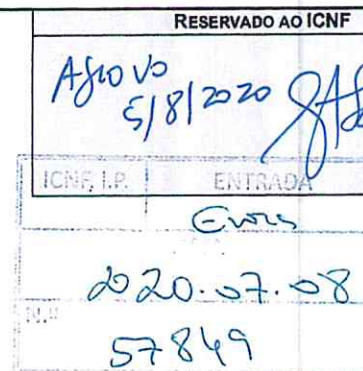 RESERVADO AO ICNF
Aprovo
5/8/2020
ICNF, I.P. ENTRADA
Evora
2020.07.08
N.º
57849